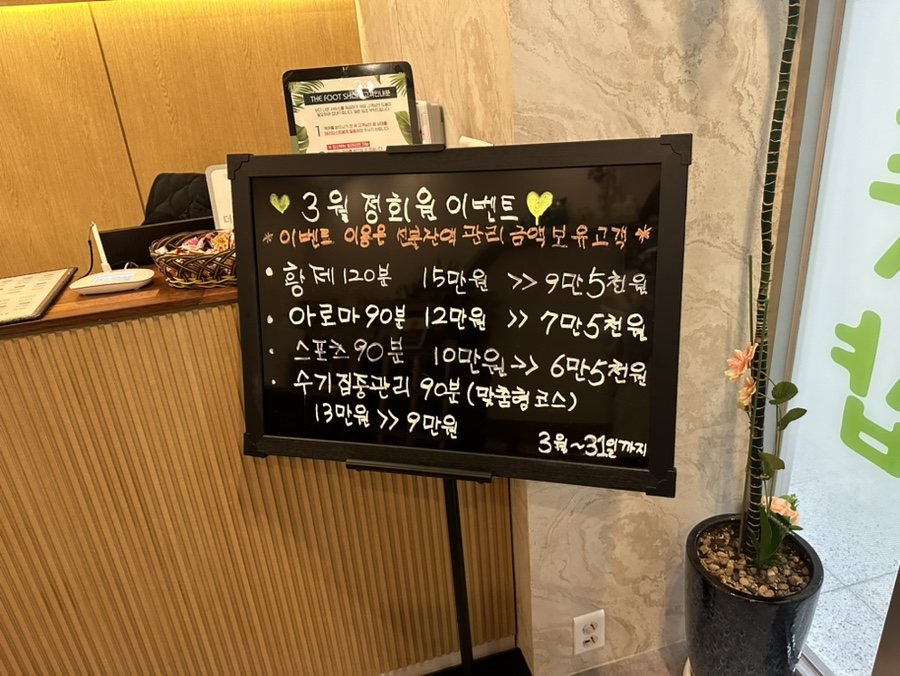 THE FOOT SH
1
3월 정회원 이벤트
* 이벤트 이용은 선불잔액 관리금액보유고객 *
• 황제 120분 15만원 >> 9만5천원
• 아로마 90분 12만원 >> 7만5천원
• 스포츠 90분 10만원 >> 6만5천원
• 수기집중관리 90분 (맞춤형코스)
13만원 >> 9만원
3월~31일까지